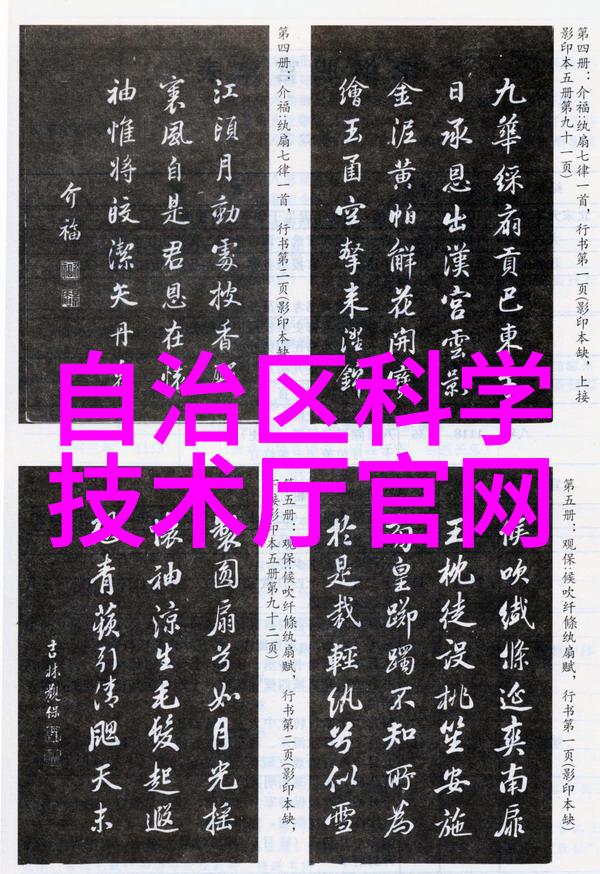 自治区科学
技术厅官网
第四册：介福：纨扇七律一首，行书第一页(影印本缺，上接
影印本五册第九十一页)
九華綵扇貢巴東
日承恩出漢宮雲影
金泥黄帕鮮花開寶
繪玉函空擎来濯錦
第四册：介福：纨扇七律一首，行书第二页(影印本缺
江頭月動處披香
裏風自是君恩在懷
袖惟将皎潔矢丹
介福
第五册：观保：候吹纤絛纨扇赋，行书第一页(影印本缺)
候吹纎絛延爽南扉
玉枕徒设桃笙安施
皇躑躅不知所為
於是裁輕纨兮似雪
第五册：观保：候吹纤絛纨扇赋，行书第二页(影印本缺，
下接影印本五册第九十二页)
製圓扇兮如月光摇
懷袖涼生毛髮起遐
青蘋引清颸天末
吉林觀保